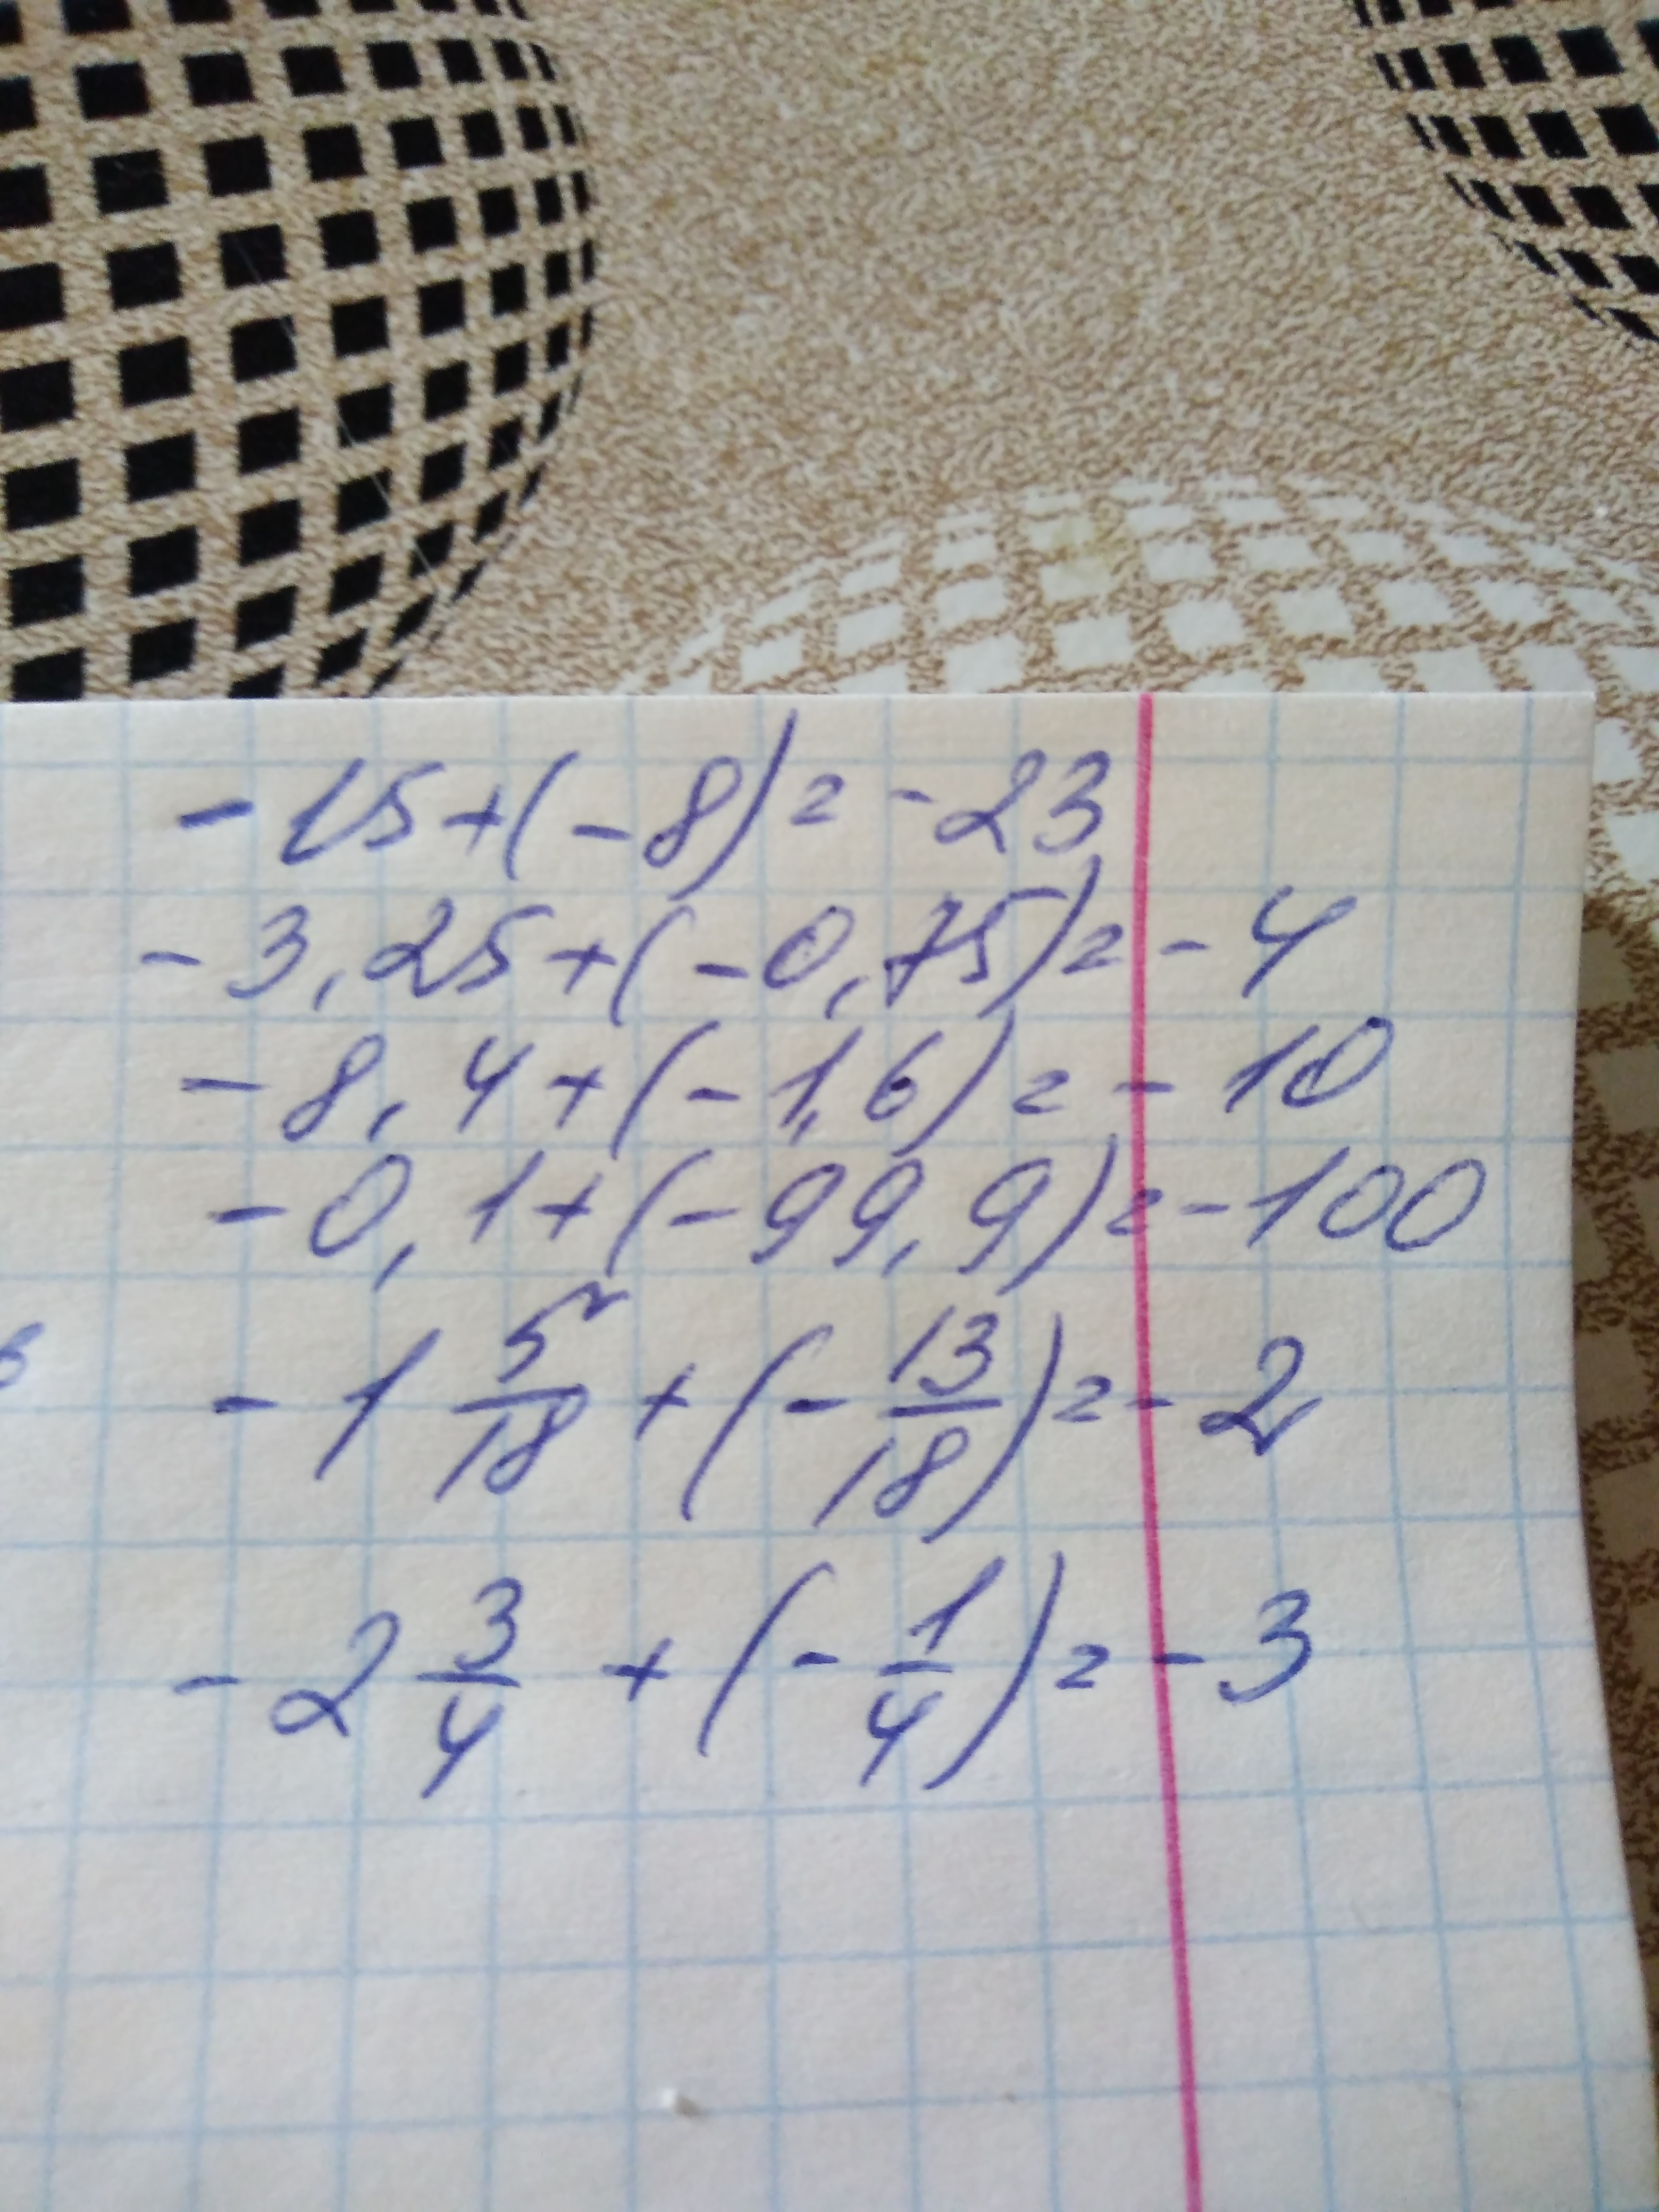 -15+(-8)=-23
-3,25+(-0,75)=-4
-8,4+(-1,6)=-10
-0,1+(-99,9)=-100
-1 5/18+(-13/18)=-2
-2 3/4+(-1/4)=-3